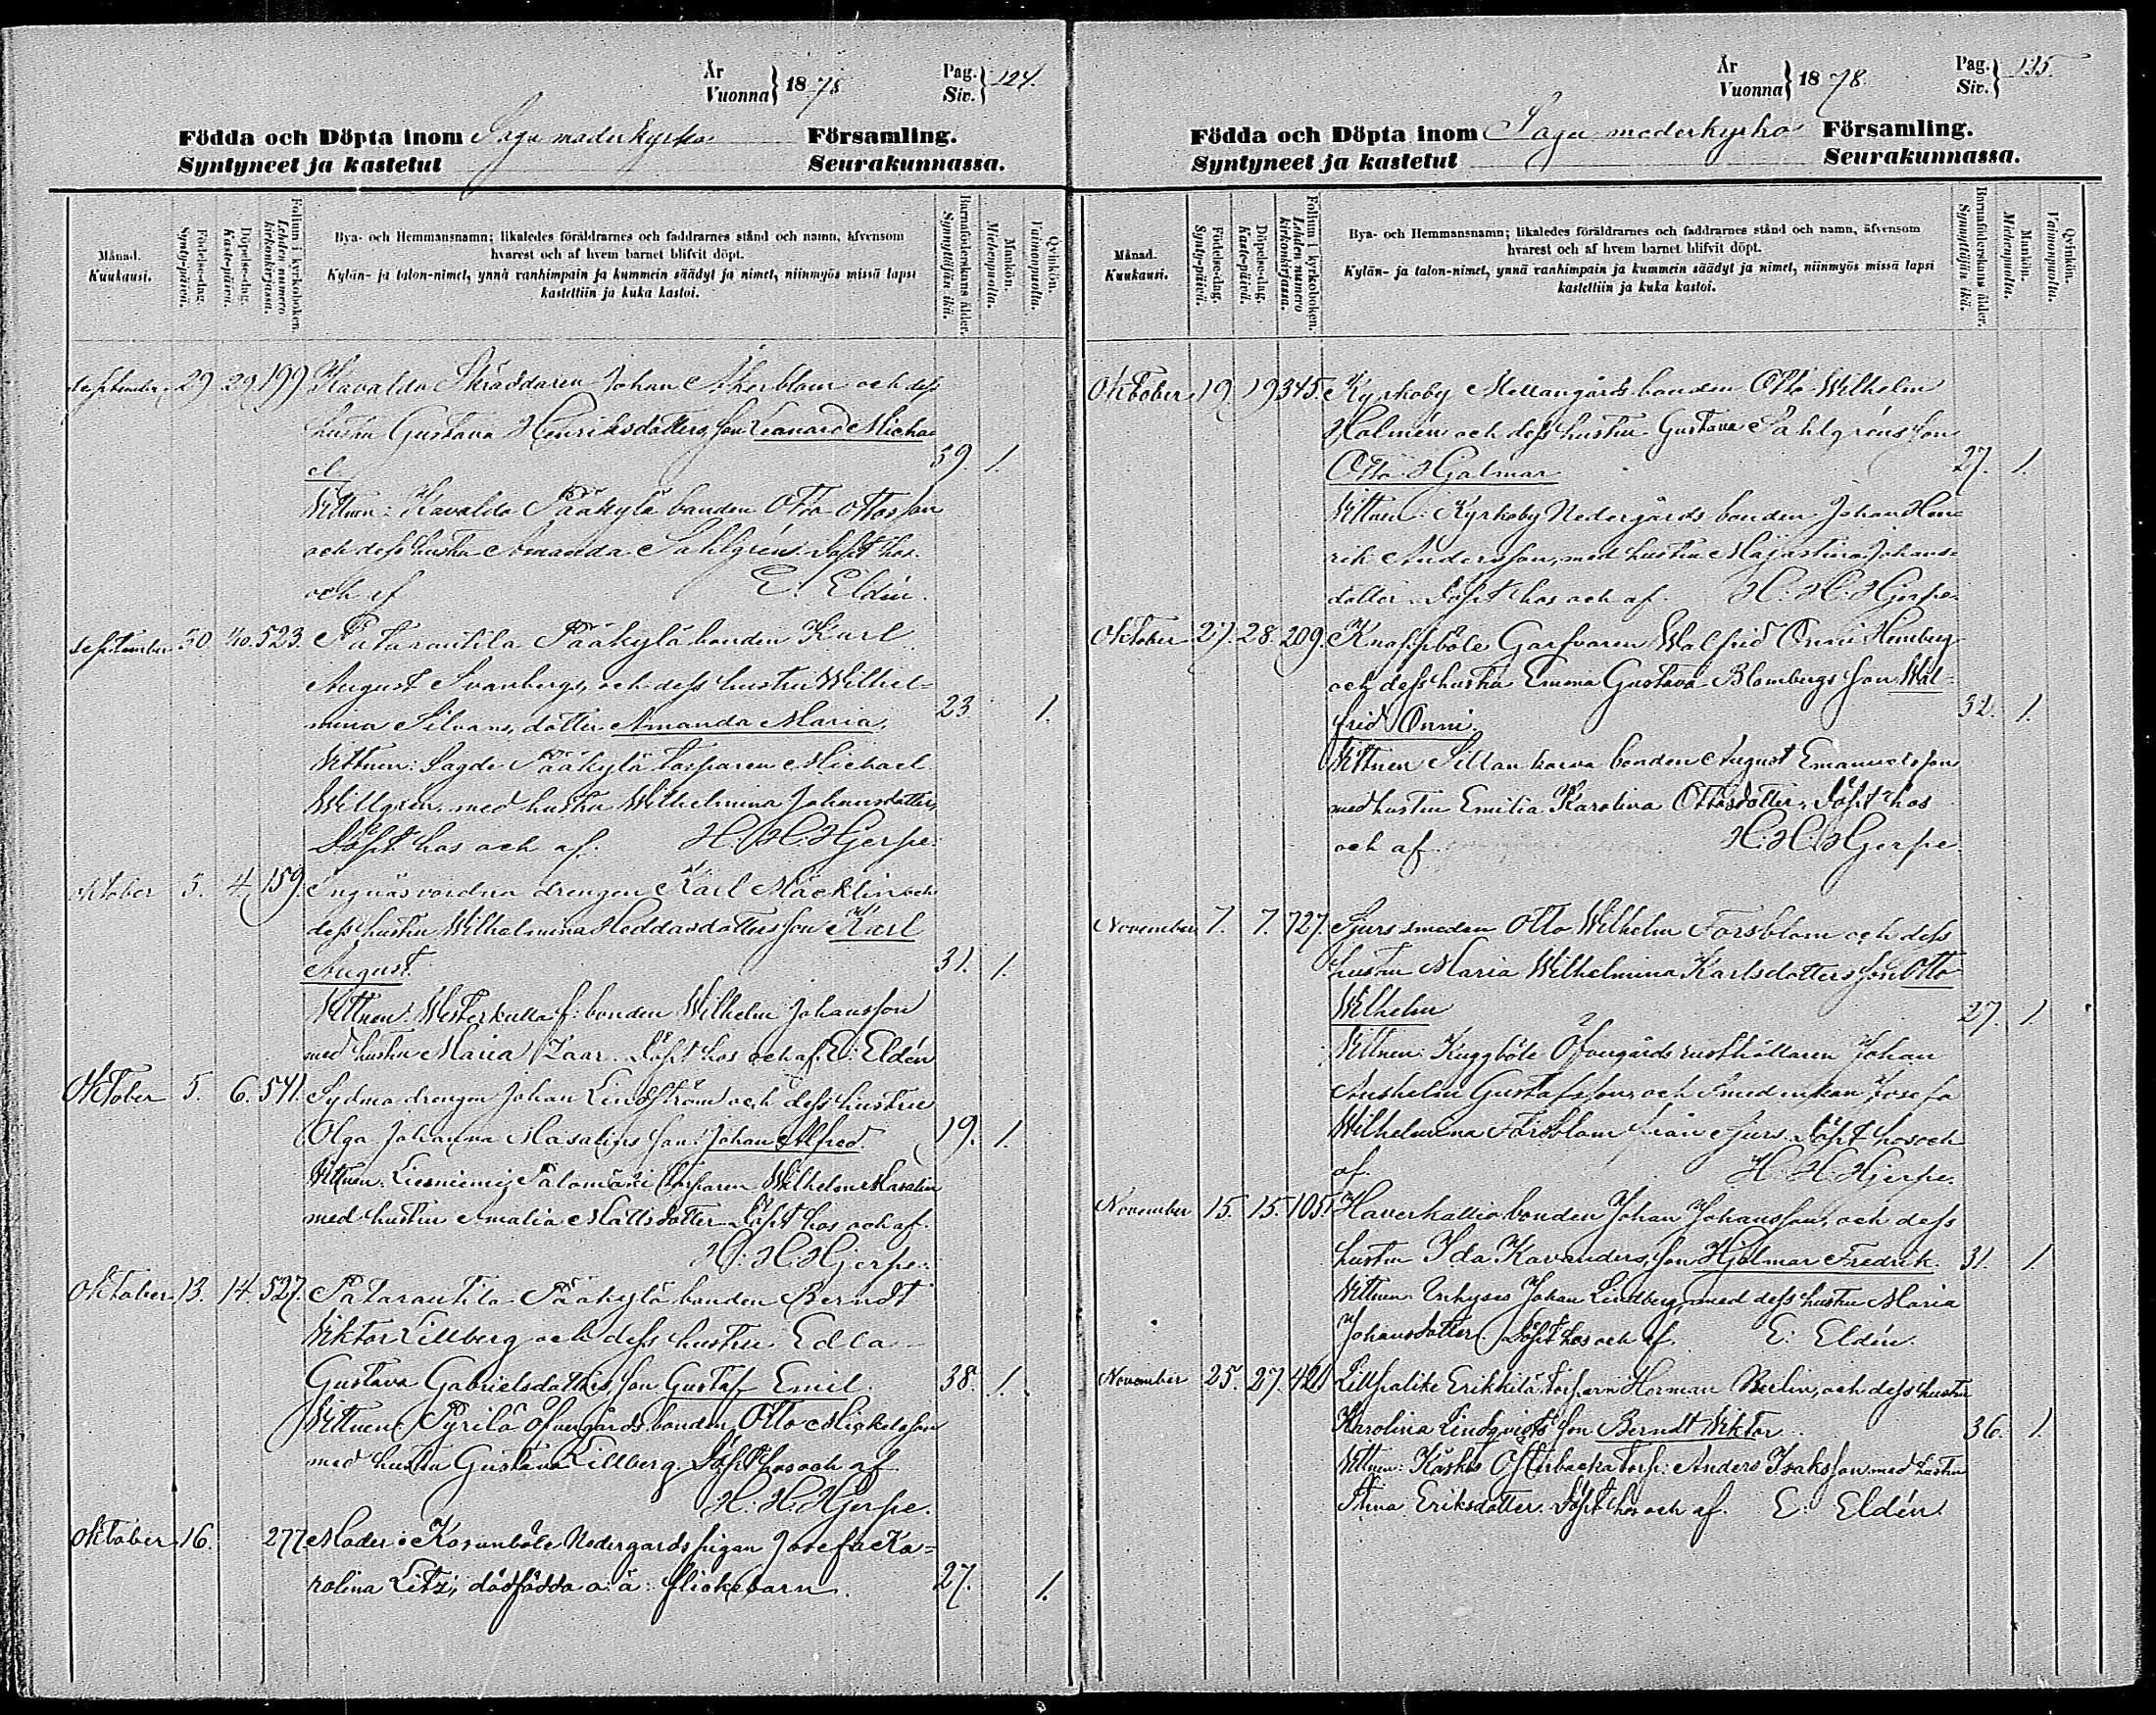 År
Vuonna } 1878
Pag.
Siv. } 124.
Födda och Döpta inom Sagu moderkyrko Församling.
Syntyneet ja kastetut Seurakunnassa.
Månad.
Kuukausi.
Födelse-dag.
Synty-päivä.
Döpelse-dag.
Kaste-päivä.
Folium i kyrkoboken.
Lehden numero
kirkonkirjassa.
Bya- och Hemmansnamn; likaledes föräldrarnes och faddrarnes stånd och namn, äfvensom
hvarest och af hvem barnet blifvit döpt.
Kylän- ja talon-nimet, ynnä vanhimpain ja kummein säädyt ja nimet, niinmyös missä lapsi
kastettiin ja kuka kastoi.
Barnaföderskans ålder.
Synnyttäjän ikä.
Mankön.
Miehenpuolta.
Qvinkön.
Vaimonpuolta.
September 29 29 199 Kavalda Skräddaren Johan Åkerblom och dess
hustru Gustava Henriksdotters, son Leonard Micha=
el. 39. 1.
Vittnen: Kavalda Pääkylä bonden Otto Ottosson
och dess hustru Amanda Sahlgréns. Döpt hos
och af E. Eldén.
September 30 1/10. 523. Patarautila Pääkylä bonden Karl
August Svanbergs, och dess hustru Wilhel=
mina Silvans, dotter Amanda Maria. 23. 1.
Vittnen: Sagde Pääkylä torparen Michael
Willgren, med hustru Wilhelmina Johansdotter,
Döpt hos och af. H. H. Hjerpe.
Oktober 3. 4 159. Ingnäs drengen Karl Mäcklin och
dess hustru Wilhelmina Heddasdotters son Karl
August. 31. 1.
Vittnen: Westerkulla f: bonden Wilhelm Johansson
med hustru Maria Zaar. Döpt hos och af E: Eldén
Oktober 5. 6. 541. Sydmo drengen Johan Lindström och dess hustru
Olga Johanna Masalins son Johan Alfred. 19. 1.
Vittnen: Liesniemi Palomäki torparen Wilhelm Masalin
med hustru Amalia Mattsdotter Döpt hos och af.
H: H: Hjerpe.
Oktober 13. 14. 527. Patarautila Pääkylä bonden Berndt
Viktor Lillberg och dess hustru Edla
Gustava Gabrielsdotters, son Gustaf Emil. 38. 1.
Vittnen: Pyrilä Öfvergårds bonden Otto Mickelsson
med hustru Gustava Lillberg. Döpt hos och af
H: H: Hjerpe.
Oktober 16. 277. Moder: Kosunböle Nedergårds pigan Josefa Ka=
rolina Litzi, dödfödda o. ä: flickebarn. 27. 1.
År
Vuonna } 1878.
Pag.
Siv. } 135.
Födda och Döpta inom Sagu moderkyrko Församling.
Syntyneet ja kastetut Seurakunnassa.
Månad.
Kuukausi.
Födelse-dag.
Synty-päivä.
Döpelse-dag.
Kaste-päivä.
Folium i kyrkoboken.
Lehden numero
kirkonkirjassa.
Bya- och Hemmansnamn; likaledes föräldrarnes och faddrarnes stånd och namn, äfvensom
hvarest och af hvem barnet blifvit döpt.
Kylän- ja talon-nimet, ynnä vanhimpain ja kummein säädyt ja nimet, niinmyös missä lapsi
kastettiin ja kuka kastoi.
Barnaföderskans ålder.
Synnyttäjän ikä.
Mankön.
Miehenpuolta.
Qvinkön.
Vaimonpuolta.
Oktober 19. 19 345. Kyrkoby Mellangårds bonden Otto Wilhelm
Holmén och dess hustru Gustava Sahlgréns son
Otto Hjalmar 27. 1.
Vittnen: Kyrkoby Nedergårds bonden Johan Hen=
rik Andersson, med hustru Majastina Johans=
dotter. Döpt hos och af. H. H. Hjerpe.
Oktober 27. 28. 209. Knaspböle Garfvaren Walfrid Onni Hemberg
och dess hustru Emma Gustava Blombergs son Wal=
frid Onni. 32. 1.
Vittnen Sillankorva bonden August Emanuelsson
med hustru Emilia Karolina Ottosdotter. Döpt hos
och af. H: H: Hjerpe
November 7. 7. 727. Sjurs smeden Otto Wilhelm Forsblom och dess
hustru Maria Wilhelmina Karlsdotters son Otto
Wilhelm 27. 1.
Vittnen: Kuggböle Öfvergårds rusthållaren Johan
Anshelm Gustafsson, och Smedenkan Josefa
Wilhelmina Forsblom från Sjurs. Döpt hos och
af. H. H. Hjerpe.
November 15. 15. 105. Haverkallio bonden Johan Johansson, och dess
hustru Ida Kavanders, son Hjalmar Fredrik. 31. 1.
Vittnen: Inhyses Johan Lindberg, med dess hustru Maria
Johansdotter. Döpt hos och af. E: Eldén.
November 25. 27. 421 Lillpalike Erikkilä torparn Herman Berlin, och dess hustru
Karolina Lindqvists son Berndt Viktor. 36. 1.
Vittnen: Kaskos Österbacka torp: Anders Isaksson med hustru
Stina Eriksdotter. Döpt hos och af. E: Eldén